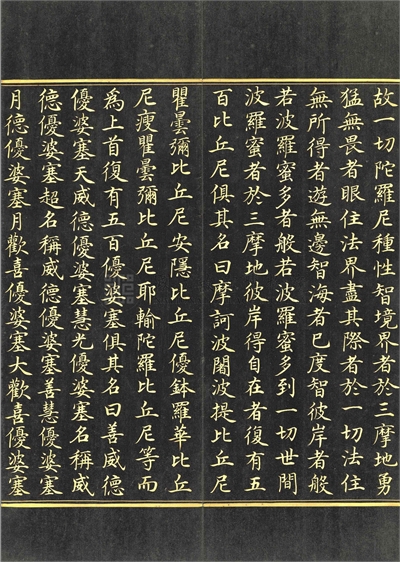 故一切陀羅尼種性智境界者於三摩地勇
猛無畏者眼住法界盡其際者於一切法住
無所得者遊無邊智海者已度智彼岸者般
若波羅蜜多者般若波羅蜜多到一切世間
波羅蜜者於三摩地彼岸得自在者復有五
百比丘尼俱其名曰摩訶波闍波提比丘尼
瞿曇彌比丘尼安隱比丘尼優鉢羅華比丘
尼瘦瞿曇彌比丘尼耶輸陀羅比丘尼等而
為上首復有五百優婆塞俱其名曰善威德
優婆塞天威德優婆塞慧光優婆塞名稱威
德優婆塞超名稱威德優婆塞善慧優婆塞
月德優婆塞月歡喜優婆塞大歡喜優婆塞